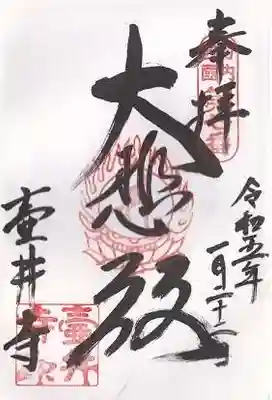 奉拝
令和五年
一月二十二日
大悲殿
壷井寺